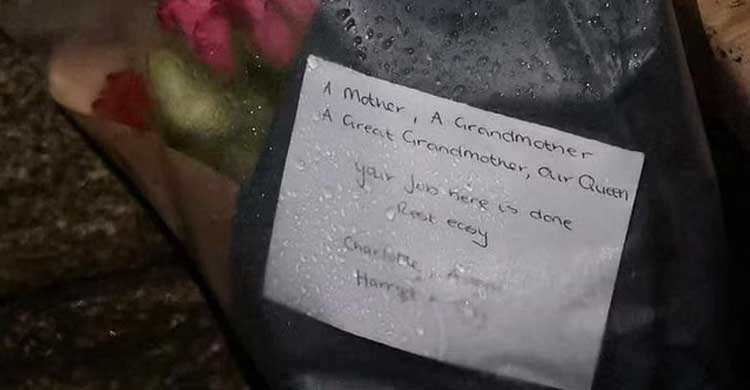 A Mother, A Grandmother
A Great Grandmother, Our Queen
Your Job here is done
Rest easy
Charlotte,